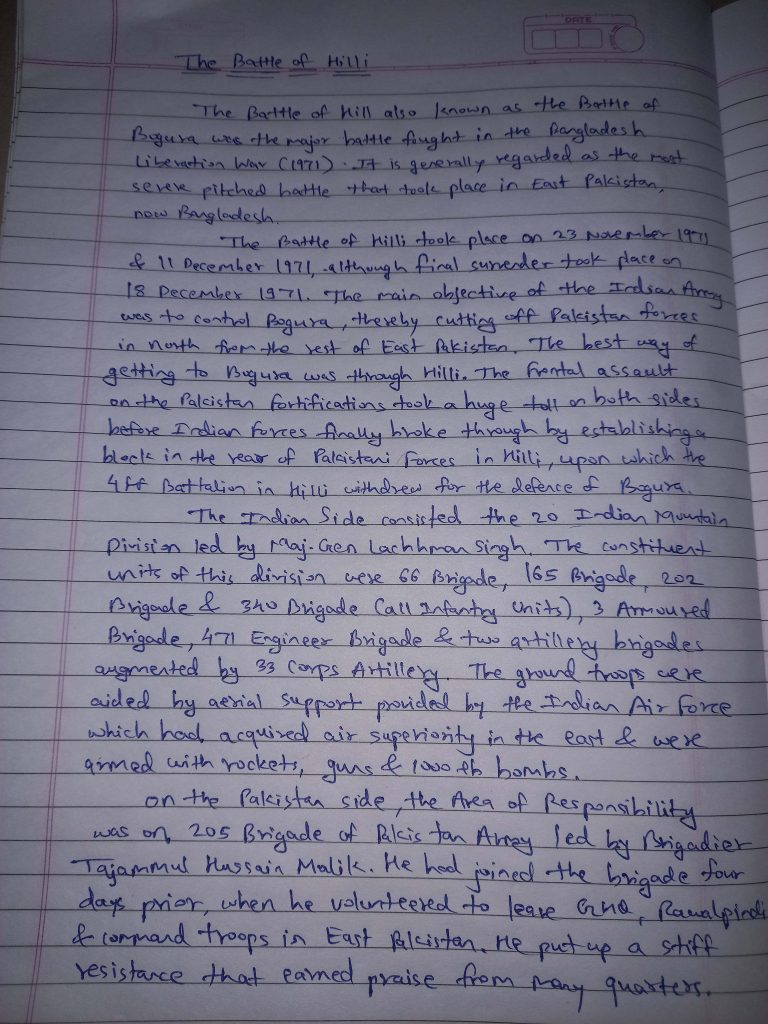 DATE
The Battle of Hilli
The Battle of Hill also known as the Battle of
Bogura was the major battle fought in the Bangladesh
Liberation War (1971). It is generally regarded as the most
severe pitched battle that took place in East Pakistan,
now Bangladesh.
The Battle of Hilli took place on 23 November 1971
& 11 December 1971, although final surrender took place on
18 December 1971. The main objective of the Indian Army
was to control Bogura, thereby cutting off Pakistan forces
in north from the rest of East Pakistan. The best way of
getting to Bogura was through Hilli. The frontal assault
on the Pakistan fortifications took a huge toll on both sides
before Indian forces finally broke through by establishing a
block in the rear of Pakistani Forces in Hilli, upon which the
4 FF Battalion in Hilli withdrew for the defence of Bogura.
The Indian Side consisted the 20 Indian Mountain
Division led by Maj-Gen Lachhman Singh. The constituent
units of this division were 66 Brigade, 165 Brigade, 202
Brigade & 340 Brigade (all Infantry Units), 3 Armoured
Brigade, 471 Engineer Brigade & two artillery brigades
augmented by 33 Corps Artillery. The ground troops were
aided by aerial support provided by the Indian Air Force
which had acquired air superiority in the east & were
armed with rockets, guns & 1000 lb bombs.
On the Pakistan side, the Area of Responsibility
was on 205 Brigade of Pakistan Army led by Brigadier
Tajammul Hussain Malik. He had joined the brigade four
days prior, when he volunteered to leave GHQ, Rawalpindi
& command troops in East Pakistan. He put up a stiff
resistance that earned praise from many quarters.